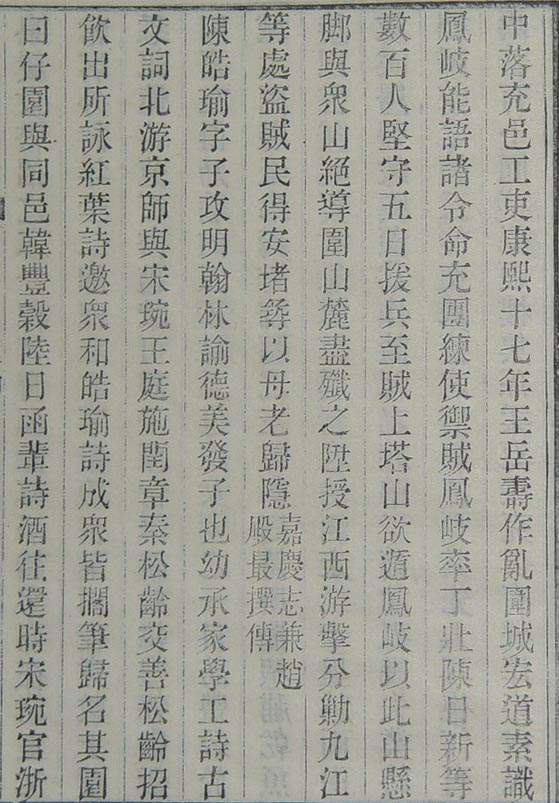 中落充邑工吏康熙十七年王岳壽作亂圍城宏道素識
鳳岐能語諸令命充團練使禦賊鳳岐率丁壯陳日新等
數百人堅守五日援兵至賊上塔山欲遁鳳岐以此山懸
脚與衆山絕導圍山麓盡殲之陞授江西游擊分勦九江
等處盜賊民得安堵尋以母老歸隱嘉慶志兼趙
殿最撰傳
陳皓瑜字子攻明翰林諭德美發子也幼承家學工詩古
文詞北游京師與宋琬王庭施閏章秦松齡交善松齡招
飲出所詠紅葉詩邀衆和皓瑜詩成衆皆擱筆歸名其園
曰仔園與同邑韓豐穀陸曰函輩詩酒往還時宋琬官浙